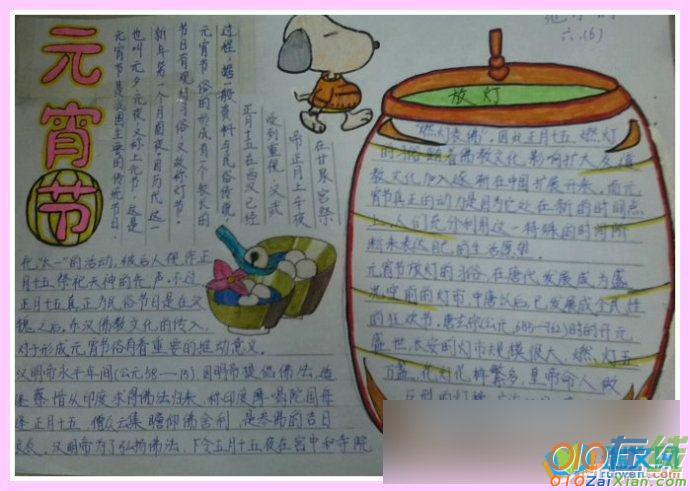 元宵节
元宵节是我国主要的传统节日，
也叫元夕、元夜，又称上元节，这是
新年第一个月圆夜。因历代这一
节日有观灯习俗，又故称灯节。
元宵节俗的形成有一个较长的
过程，据一般资料与民俗传说，
正月十五在西汉已经
受到重视，汉武
帝正月上辛夜
在甘泉宫祭
祀“太一”的活动，被后人视作正
月十五祭祀天神的先声。不过
正月十五真正为民俗节日是在汉
魏之后。东汉佛教文化的传入，
对于形成元宵节俗有着重要的推动意义。
汉明帝永平年间(公元58—75)因明帝提倡佛法，适
逢蔡愔从印度求得佛法归来，称印度摩喝陀国每
逢正月十五，僧众云集瞻仰佛舍利，是参佛的吉日
良辰。汉明帝为了弘扬佛法，下令正月十五夜在宫中和寺院
六.(6)
放灯
“燃灯表佛”。因此正月十五燃灯
的习俗随着佛教文化影响扩大及道
教文化加入逐渐在中国扩展开来。而元
宵节真正的动力是因为它处在新的时间点
上，人们充分利用这一特殊的时间阶
段来表达自己的生活愿望。
元宵节放灯的习俗，在唐代发展成为盛
况空前的灯市，中唐以后，已发展成全民性
的狂欢节。唐玄宗(公元685—762)时的开元
盛世，长安的灯市规模很大，燃灯五
万盏，花灯花样繁多，皇帝命人做
巨型的灯楼
ruiwen.com
010在线
010ZaiXian.com